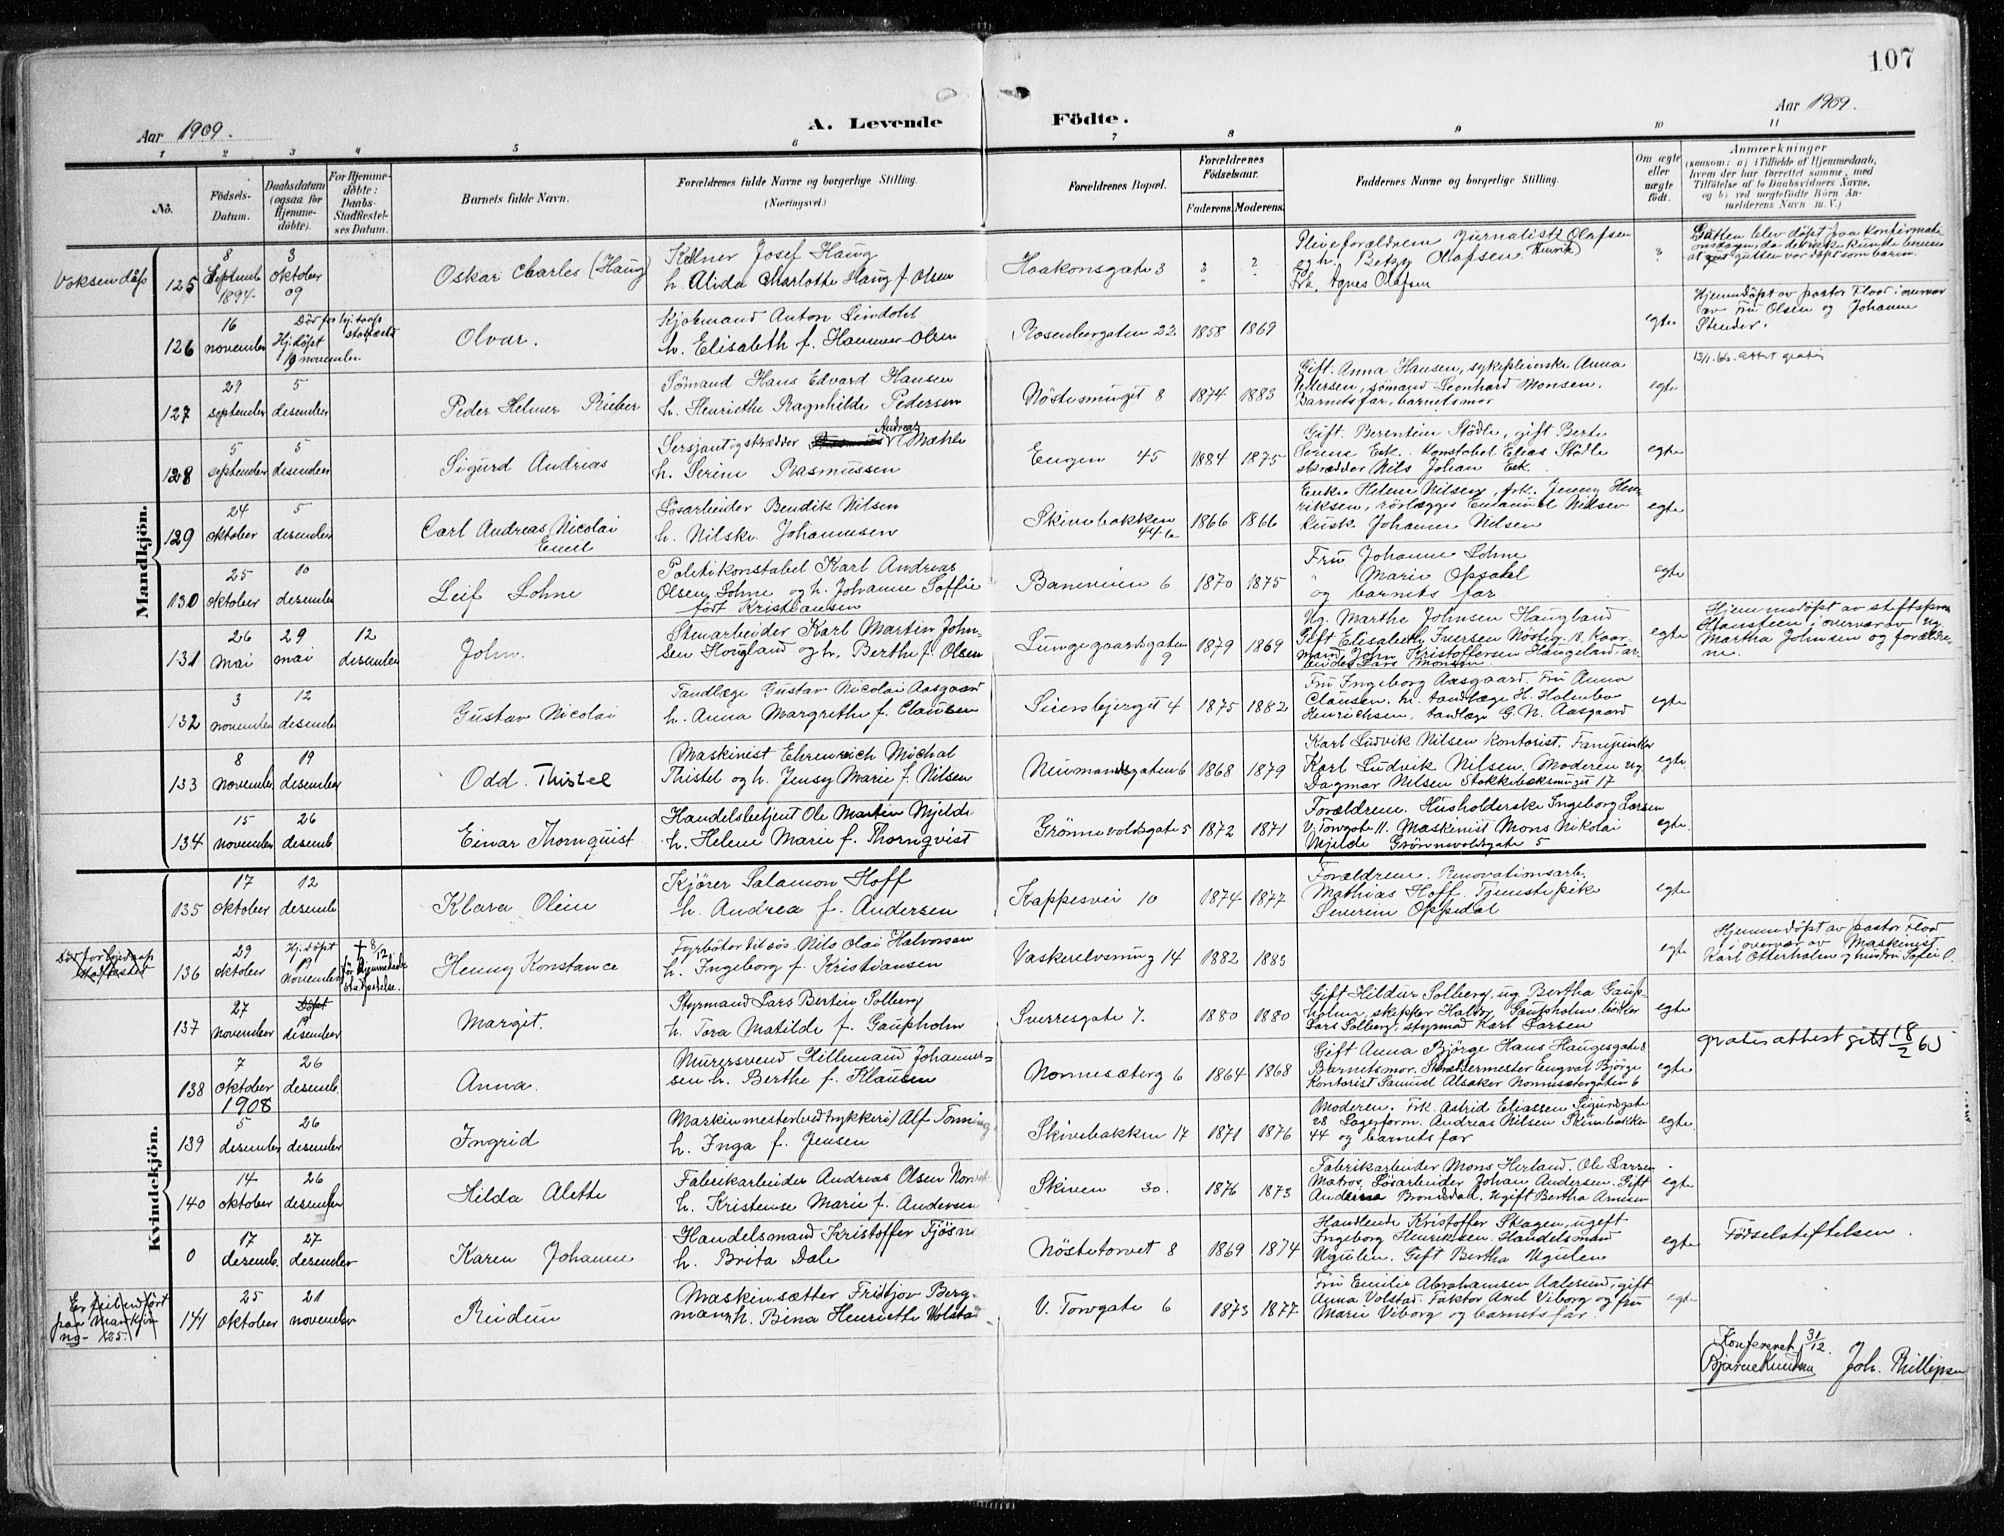 107
Aar 1909.
A. Levende Födte.
Aar 1909.
1 2 3 4 5 6 7 8 9 10 11
No.
Födsels-Datum.
Daabsdatum (ogsaa for Hjemme-döbte).
For Hjemme-döbte: Daabs-Stadfæstel-ses Datum.
Barnets fulde Navn.
Forældrenes fulde Navne og borgerlige Stilling.
(Næringsvei.)
Forældrenes Bopæl.
Forældrenes Födselsaar.
Faderens. Moderens.
Faddernes Navne og borgerlige Stilling.
Om ægte eller uægte födt.
Anmærkninger
(saasom: a) i Tilfælde af Hjemmedaab,
hvem der har forrettet samme, med
Tilföielse af to Daabsvidners Navne,
og b) ved uægtefödte Börn An-
melderens Navn m. V.)
Mandkjön.
Voksendåp
125
8 September 1894
3 oktober 09
Oskar Charles (Haug)
Kelner Josef Haug
h. Alida Charlotte Haug f. Olsen
Haakonsgate 3
? ?
Pleieforældrene Jurnalist Olafsen
og h. Betzy Olafsen
Frk. Agnes Olafsen
Gutten blev døpt paa konfirmati-
onsdagen, da det ikke kunde bevises
at gutten var døpt som barn.
126
16 november
Hj. døpt 19 november
Olvar.
Kjøbmand Anton Lindahl
h. Elisabeth f. Hammer-Olsen
Rosenbergaten 22
1858 1869
egte
Hjemmdøpt av pastor Floor i overvær
av Fru Olsen og Johanne
Stender.
127
29 september
5 desember
Peder Helmer Rieber
Sømand Hans Edvard Hansen
h. Henriette Ragnhilde Pedersen
Nøstesmuget 8
1874 1883
Gift. Anna Hansen, sykepleierske Anna
Pedersen, sømand Leonhard Monsen.
Barnets far, barnetsmor
egte
13/1. 66. attest gratis
128
5 september
5 desember
Sigurd Andreas
Sersjant og skrædder Andreas Mæhle
h. Serine Rasmussen
Engen 45
1884 1875
Gift. Berentine Stødle, gift Berte
Serene Esk. Konstabel Elias Stødle
skrædder Nils Johan Esk.
egte
129
24 oktober
5 desember
Carl Andreas Nicolai
Emil
Løsarbeider Bendik Nilsen
h. Nilske Johannesen
Skivebakken
44 b
1866 1866
Enke Helene Nilsen, frk. Jenny Hen-
riksen, rørlægger Emanuel Nilsen
Kusk Johannes Nilsen
egte
130
25 oktober
10 desember
Leif Lohne
Politikonstabel Karl Andreas
Olsen Lohne og h. Johanne Soffie
født Kristiansen
Baneveien 6
1870 1875
Fru Johanne Lohne
" Marie Opsahl
og barnets far.
egte
131
26 mai
29 mai
12 desember
John.
Stenarbeider Karl Martin John-
sen Haugland og h. Berthe f. Olsen
Lungegaardsgaten
9
1879 1869
Ug. Marthe Johnsen Haugland
Gift Elisabeth Iversen Nøsteg. 18. Kaar-
mand John Kristoffersen Haugeland, ar-
beider Lars Monsen.
egte
Hjemmdøpt av stiftsprov
Hansteen i overvær av ug.
Martha Johnsen og forældre-
ne.
132
3 november
12 desember
Gustav Nicolai
Tandlæge Gustav Nicolai Aasgaard
h. Anna Margrethe f. Clausen
Sverresbjerget 4
1875 1882
Fru Ingeborg Aasgaard. Fru Anna
Clausen, hr. tandlæge H. Holmboe
Henrichsen, tandlæge G. N. Aasgaard
egte
133
8 november
19 desember
Odd. Thistel
Maskinist Ehrenreich Michal
Thistel og h. Jensy Marie f. Nilsen
Neumannsgaten 6
1868 1879
Karl Ludvik Nilsen kontorist.
Karl Ludvik Nilsen. Moderen ug.
Dagmar Nilsen Stokkebæksmuget 17
egte.
134
15 november
26 desemb.
Einar Thornquist
Handelsbetjent Ole Martin Mjelde
h. Helene Marie f. Thornqvist
Grønnevoldsgate 5
1872 1871
Forældrene. Husholderske Ingeborg Larsen
V. Torvgate 11. Maskinist Mons Nikolai
Mjelde Grønnevoldsgate 5
egte.
Kvindekjön.
135
17 oktober
12 desemb.
Klara Oline
Kjører Salamon Hoff
h. Andrea f. Andersen
Kappesvei 10
1874 1877
Forældrene. Renovationsarb.
Mathias Hoff. Tjenestepike
Severine Oppedal
egte
136
29 oktober
Hj. døpt 19 november
✝ 8/12 før hjemmedaabs stadfæstelse.
Henny Konstance
Fyrbøter tilsøs. Nils Olai Halvorsen
h. Ingeborg f. Kristiansen
Vaskerelvsmug 14
1882 1883
egte
Hjemmdøpt av pastor Floor
i overvær av Maskinist
Karl Otterholm og hustru Sofie O.
137
27 november
desember
Margit.
Styrmand Lars Bertin Solberg
h. Tora Matilde f. Gaupholm
Sverresgate 7.
1880 1880
Gift Hildur Solberg, ug. Bertha Gaup-
holm, skipper Halvor Gaupholm, bødker
Lars Solberg, styrmand Karl Larsen
egte
gratis attest gitt 18/2 60
138
7 oktober
1908
26 desemb.
Anna.
Murersvend Hillemand Johannes-
sen h. Berthe f. Klausen
Nonnesæterg 6
1864 1868
Gift Anna Bjørge Hans Haugesgate 8
Barnetsmor. Skræddermester Engvat Bjørge
Kontorist Samuel Alsaker Nonnesætergaten 6
egte
139
5 desember
26 desember
Ingrid
Maskinmester (ved trykkeri) Alf Tønning
h. Inga f. Jensen
Skivebakken 17
1871 1876
Moderen. Frk. Astrid Eliassen Sigurdsgate
28 Lagerform. Andreas Nilsen Skivebakken
44 og barnets far
egte.
140
14 oktober
26 desember
Hilda Alette
Fabrikarbeider Andreas Olsen
h. Kristense Marie f. Andersen
Skiven 30.
1876 1873
Fabrikarbeider Mons Herland. Ole Larsen
Matros. Løsarbeider Johan Andersen. Gift
Andrina Brondedal. Ugift Bertha Arnesen
egte
0
17 desemb.
27 desember
Karen Johanne
Handelsmand Kristoffer Fjøsne
h. Brita Dale
Nøstetorvet 8
1869 1874
Handlende Kristoffer Skagen, ugift
Ingeborg Henriksen. Handelsmand
Ugulen. Gift Bertha Ugulen
egte
Fødselstiftelsen.
Er feilindført
paa mankjøn
ng- 125.
141
25 oktober
21 november
Reidun
Maskinsætter Fridtjov Berg-
mann h. Bina Henriette Wolstad
V. Torvgate 6
1873 1877
Fru Emilie Abrahamsen Aalesund, gift
Anna Volstad. Faktor Axel Viborg og fru
Marie Viborg og barnets far.
egte
Konfereret 31/12.
Bjarne Knudsen Joh. Phillipsen